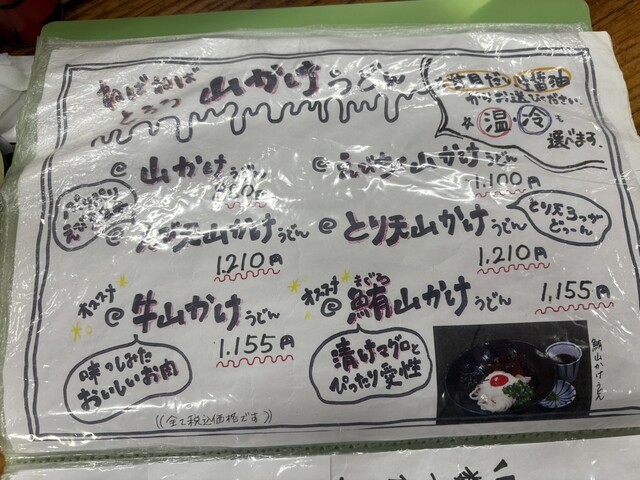 ねばねば
とろっ 山かけうどん
からお選びください。
☆温・冷を
選べます。
@ 山かけうどん
@ えび天山かけうどん
1.100円
@ とり天山かけうどん
1.210円
1.210円
とり天3つが
どーん
オススメ
@ 牛山かけうどん
1.155円
味のしみた
おいしいお肉
オススメ
@ 鮪山かけうどん
まぐろ
1,155円
漬けマグロと
ぴったり愛性
((全て税込価格です))
鮪山かけうどん